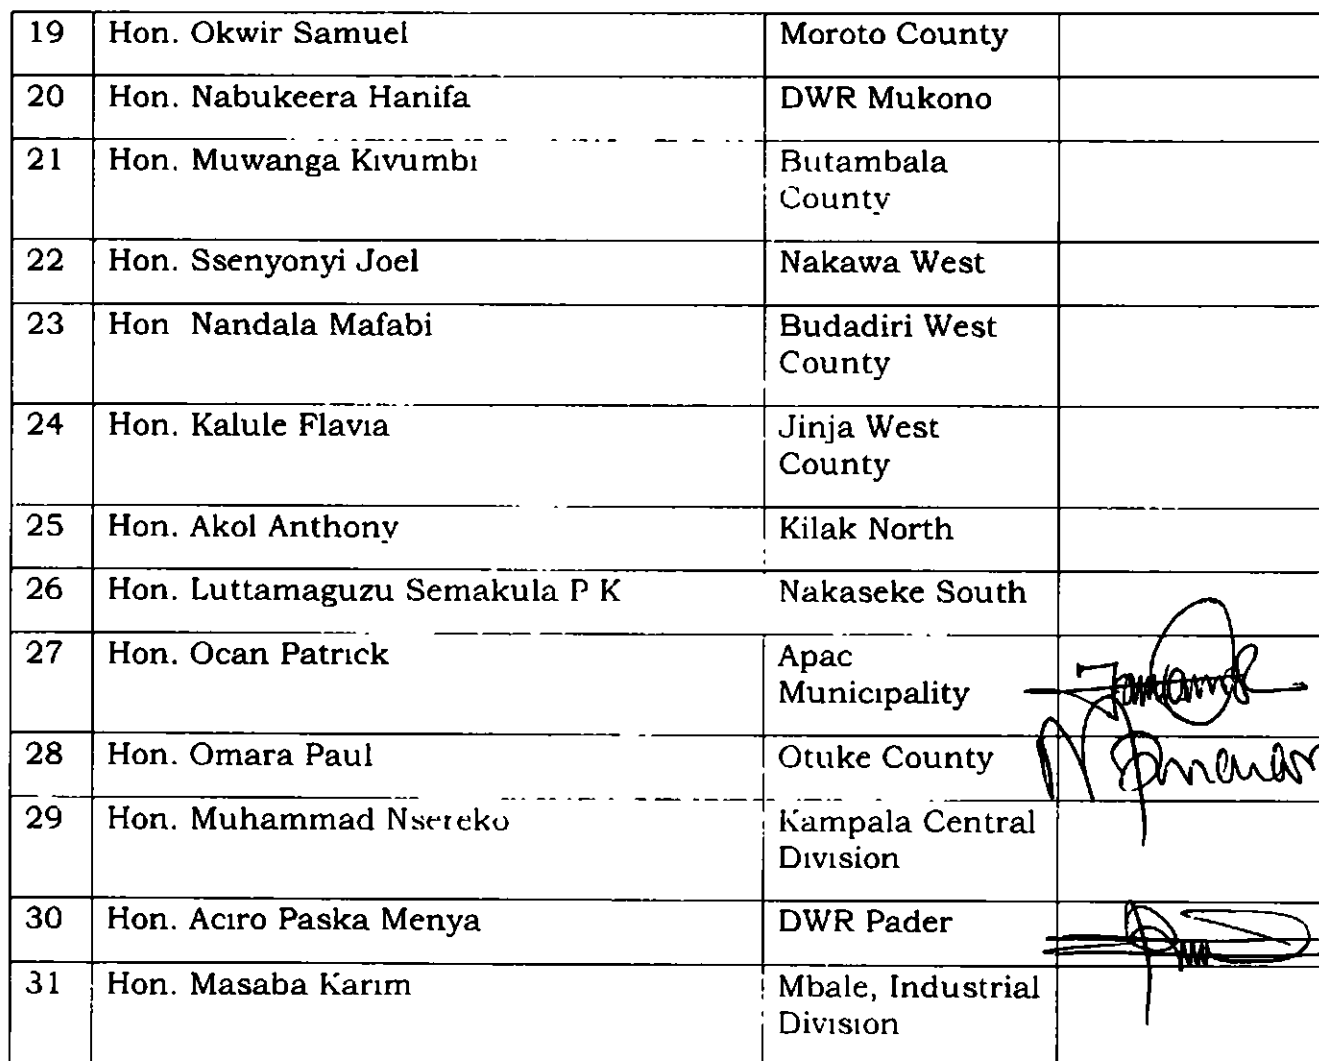 19 Hon. Okwir Samuel Moroto County
20 Hon. Nabukeera Hanifa DWR Mukono
21 Hon. Muwanga Kivumbi Butambala
County
22 Hon. Ssenyonyi Joel Nakawa West
23 Hon Nandala Mafabi Budadiri West
County
24 Hon. Kalule Flavia Jinja West
County
25 Hon. Akol Anthony Kilak North
26 Hon. Luttamaguzu Semakula P K Nakaseke South
27 Hon. Ocan Patrick Apac
Municipality
28 Hon. Omara Paul Otuke County
29 Hon. Muhammad Nsereko Kampala Central
Division
30 Hon. Aciro Paska Menya DWR Pader
31 Hon. Masaba Karim Mbale, Industrial
Division